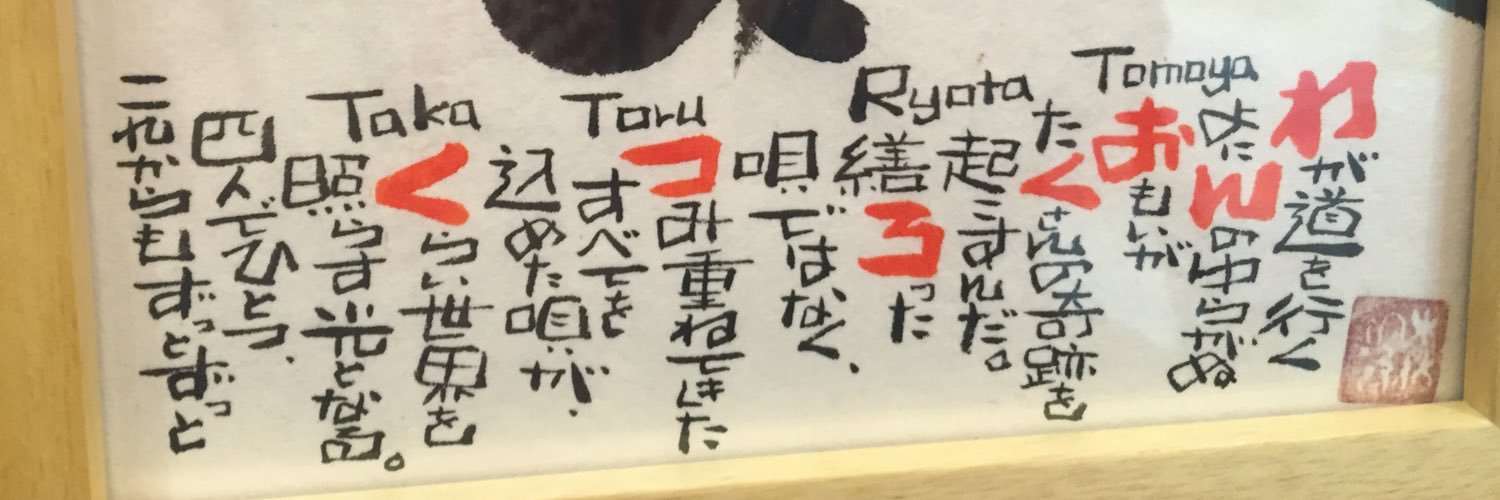 Tomoya
わが道を行く
よにんのゆらがぬ
おもいが
Ryota
たくさんの奇跡を
起こすんだ。
繕ろった
唄ではなく、
Toru
つみ重ねてきた
すべてを
込めた唄が、
Taka
くらい世界を
照らす光となる。
四人でひとつ、
これからもずっとずっと